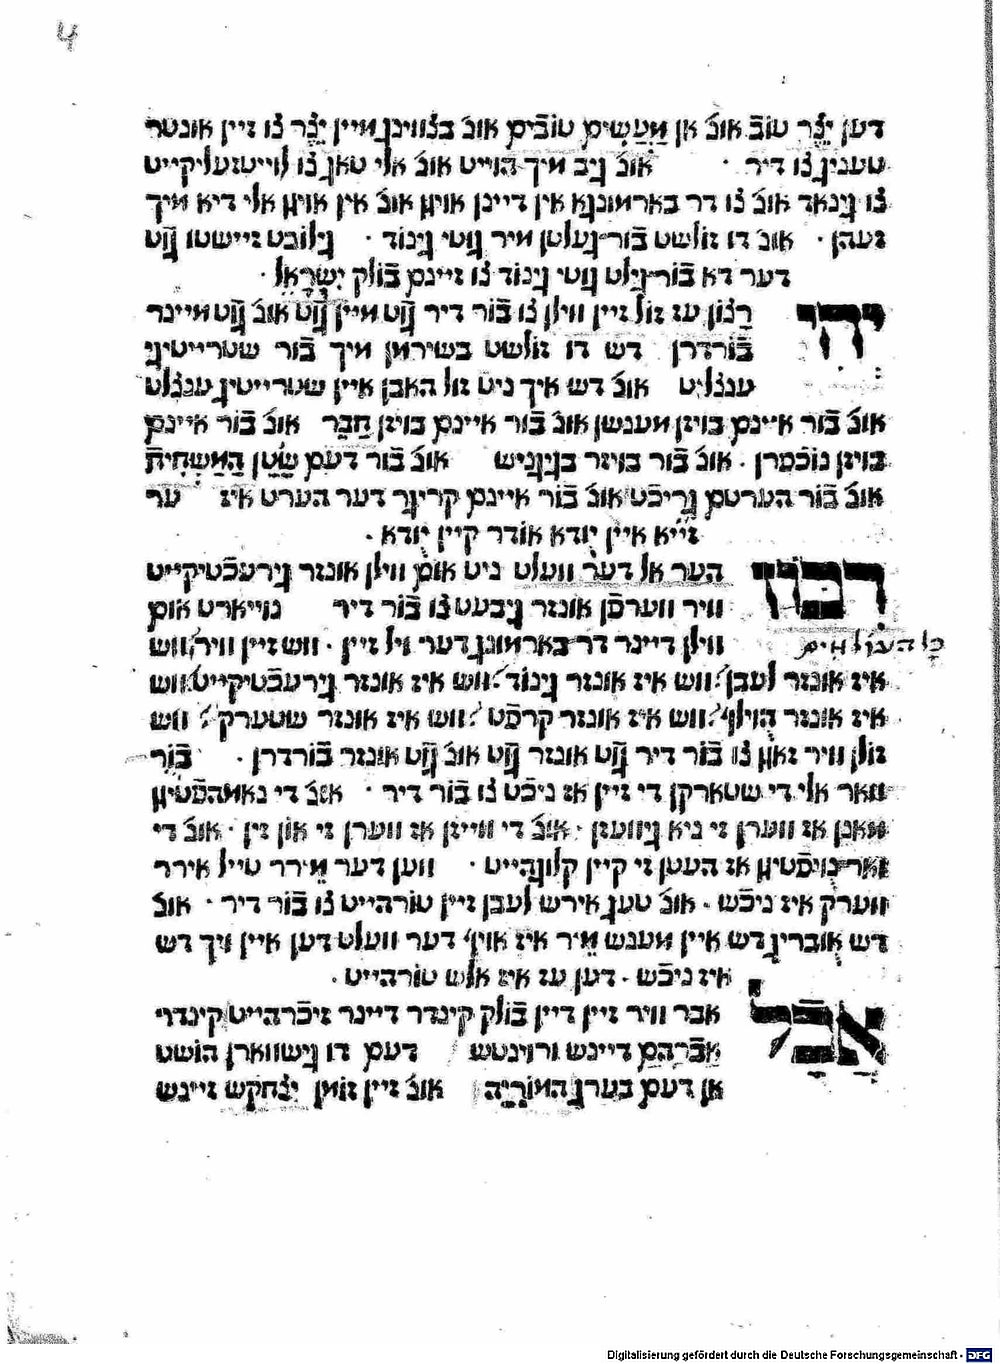 4
דען יֵצֶר טוֹב אונ׳ אן מַעֲשִים טוֹבִים אונ׳ בצווינג מיין יֵצֶר צו זיין אונטר
טענין צו דיר · אונ׳ גיב מיך הוייט אונ׳ אלי טאג צו לוייטזעליקייט
צו גינאד אונ׳ צו דר בארמונגא אין דיינן אויגן אונ׳ אין אויגן אלי דיא מיך
זעהן · אונ׳ דו זולשט בור געלטן מיר גוטי גינוד · גילובט זייישטו גוט
דער דא בור גילט גוטי גינוד צו זיינם בולק יִשְׂרָאֵל ·
יהי רצון עז זול זיין ווילן צו בור דיר גוט מיין גוט אונ׳ גוט מיינר
בורדרן דש דו זולשט בשירמן מיך בור שטרייטיגי
ענצליט אונ׳ דש איך ניט זול האבן איין שטרייטיג ענצליט
אונ׳ בור איינם בויזן מענשן אונ׳ בור איינם בויזן חָבֵר אונ׳ בור איינם
בויזן נוכפרן · אונ׳ בור בויזר בגיגניש אונ׳ בור דעם שָׂטָן הַמַשְׁחִית
אונ׳ בור הערטם גריכט אונ׳ בור איינם קריגר דער הערט איז ער
זייא איין יודא אודר קיין יודא ·
רבון הער אל דער וועלט ניט אום ווילן אונזר גירעכטיקייט
כל העולמים וויר ווערפן אונזר גיבעט צו בור דיר נוייארט אום
ווילן דיינר דר בארמונג דער ויל זיין · ווש זיין וויר ווש
איז אונזר לעבן ווש איז אונזר גינוד ווש איז אונזר גירעכטיקייט ווש
איז אונזר הוילף ווש איז אונזר קרפט ווש איז אונזר שטערק ווש
זולן וויר זאגן צו בור דיר גוט אונזר גוט אונ׳ גוט אונזר בורדרן · בור
וואר אלי די שטארקן די זיין אז ניכט צו בור דיר · אונ׳ די נאמהפטיגן
מאנן אז ווערן זי ניא גיוועזן · אונ׳ די ווייזן אז ווערן זי און זין · אונ׳ די
ואר נויפטיגן אז העטן זי קיין קלוגהייט · ווען דער מירר טייל אירר
ווערק איז ניכש · אונ׳ טעג אירש לעבן זיין טורהייט צו בור דיר · אונ׳
דש אובריג דש איין מענש מיר איז אויף דער וועלט דען איין ויך דש
איז ניכש · דען עז איז אלש טורהייט ·
אבל אבר וויר זיין דיין בולק קינדר דיינר זיכרהייט קינדר
אַבְרָהָם דיינש ורוינטש דעם דו גישווארן הושט
אן דעם בערג הַמוֹרִיָה אונ׳ זיין זומן יִצְחָקש זיינש
Digitalisierung gefördert durch die Deutsche Forschungsgemeinschaft - DFG